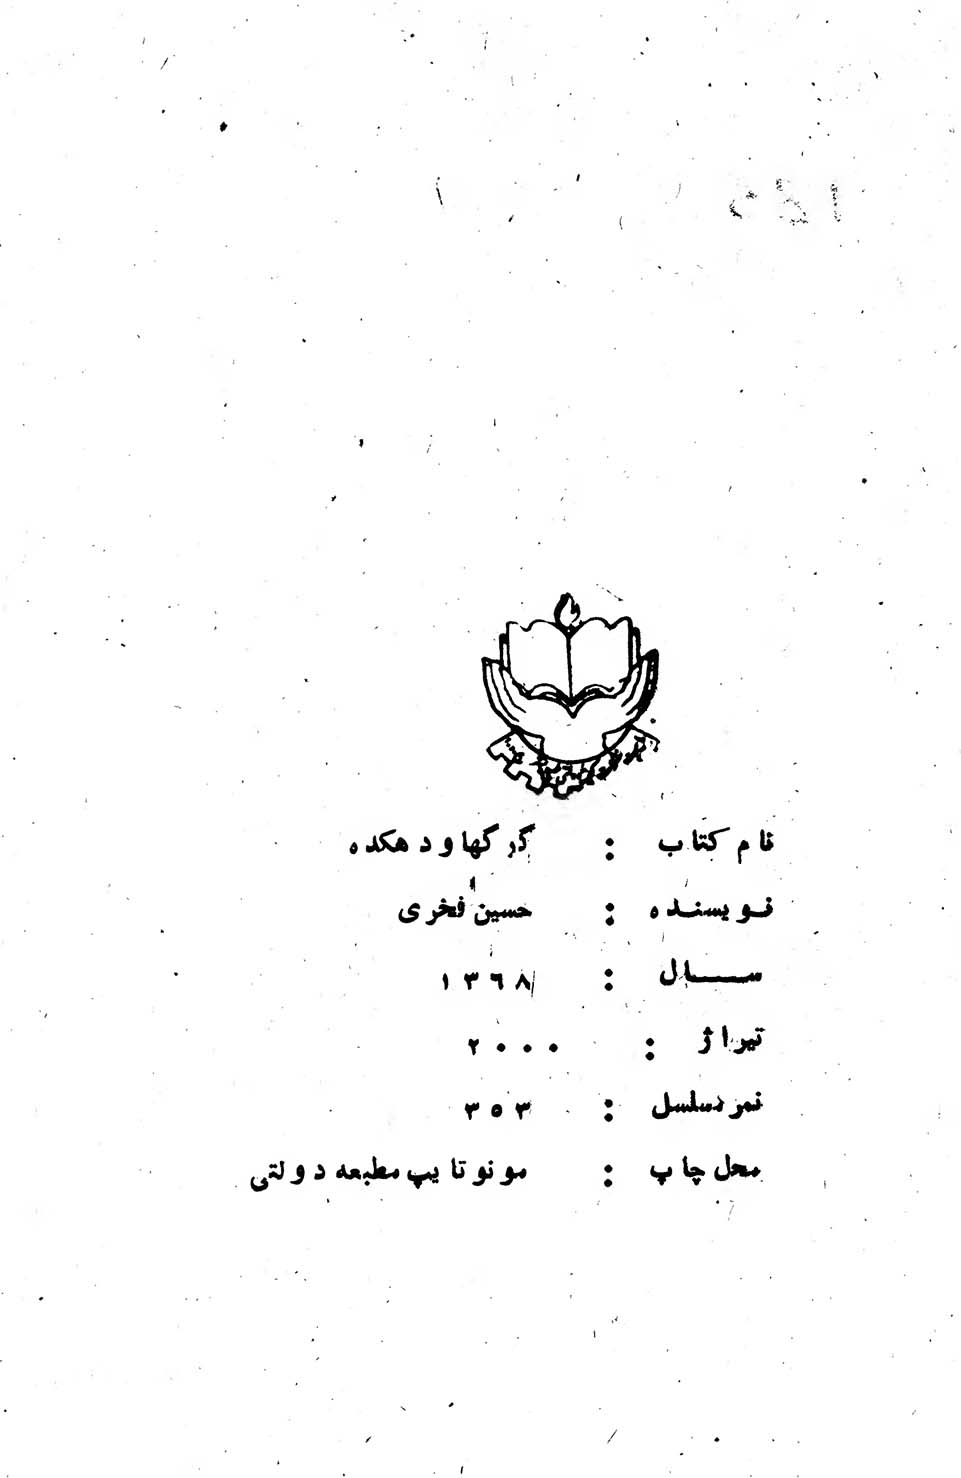 نام کتاب : گرگها و دهکده
نویسنده : حسین فخری
سال : ۱۳۶۸
تیراژ : ۲۰۰۰
نمره مسلسل : ۳۵۳
محل چاپ : مونوتایپ مطبعه دولتی